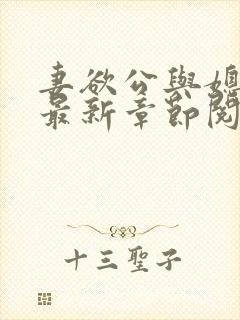 妻欲公與媳
最新章節閱
十三聖子